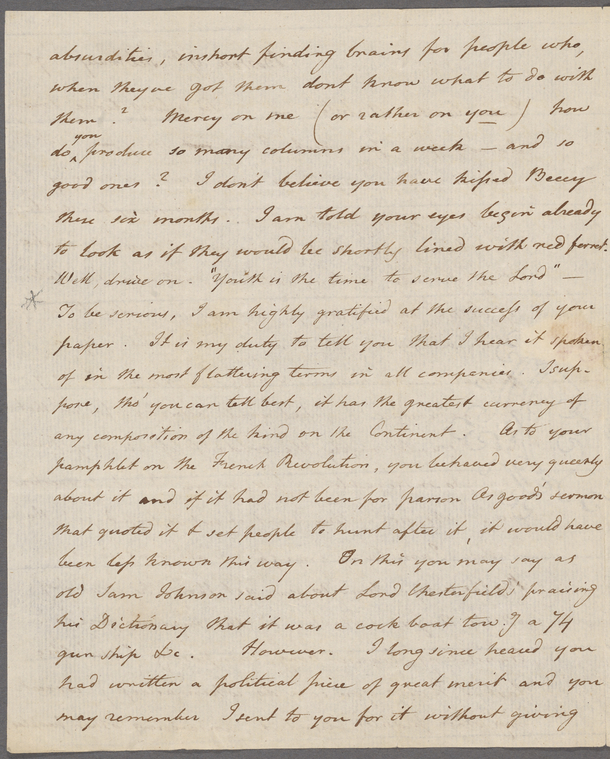 absurdities, inshort finding brains for people who,
when theyve got them dont know what to do with
them? Mercy on me (or rather on you) how
do you produce so many columns in a week — and so
good ones? I don't believe you have kissed Beccy
these six months. I am told your eyes begin already
to look as if they would be shortly lined with red ferret.
Well, drive on. "Youth is the time to serve the Lord" —
To be serious, I am highly gratified at the success of your
paper. It is my duty to tell you that I hear it spoken
of in the most flattering terms in all companies. I sup-
pose, tho' you can tell best, it has the greatest currency of
any composition of the kind on the Continent. As to your
pamphlet on the French Revolution, you behaved very queerly
about it and if it had not been for parson Osgood's sermon
that quoted it & set people to hunt after it, it would have
been less known this way. On this you may say as
old Sam Johnson said about Lord Chesterfield's praising
his Dictionary that it was a cock boat towg a 74
gun ship &c. However. I long since heard you
had written a political piece of great merit and you
may remember I sent to you for it without giving